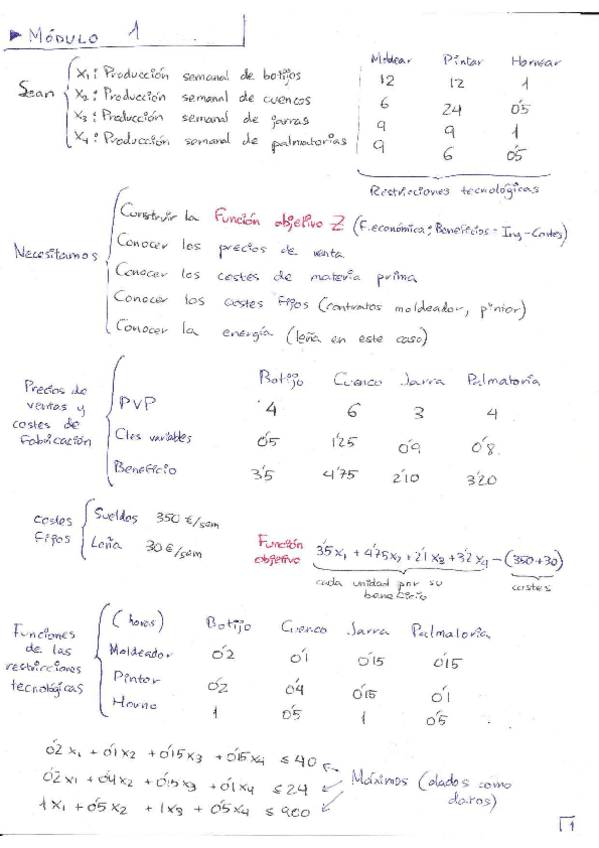 ▶ MÓDULO 1
Moldear Pintar Hornear
Sean
X₁: Producción semanal de botijos 12 12 1
X₂: Producción semanal de cuencos 6 24 0'5
X₃: Producción semanal de jarras 9 9 1
X₄: Producción semanal de palmatorias 9 6 0'5
Restricciones tecnológicas
Necesitamos
Construir la Función objetivo Z (F. económica; Beneficios = Ing - Costes)
Conocer los precios de venta
Conocer los costes de materia prima
Conocer los costes fijos (contratos moldeador, pintor)
Conocer la energía (leña en este caso)
Precios de ventas y costes de fabricación
Botijo Cuenco Jarra Palmatoria
PVP 4 6 3 4
Ctes variables 0'5 1'25 0'9 0'8
Beneficio 3'5 4'75 2'10 3'20
costes fijos
Sueldos 350 €/sem
Leña 30 €/sem
Función objetivo 3'5x₁ + 4'75x₂ + 2'1x₃ + 3'2x₄ - (350+30)
cada unidad por su beneficio
costes
Funciones de las restricciones tecnológicas
(horas) Botijo Cuenco Jarra Palmatoria
Moldeador 0'2 0'1 0'15 0'15
Pintor 0'2 0'4 0'15 0'1
Horno 1 0'5 1 0'5
0'2x₁ + 0'1x₂ + 0'15x₃ + 0'15x₄ ≤ 40
0'2x₁ + 0'4x₂ + 0'15x₃ + 0'1x₄ ≤ 24
1x₁ + 0'5x₂ + 1x₃ + 0'5x₄ ≤ 900
Máximos (dados como datos)
1